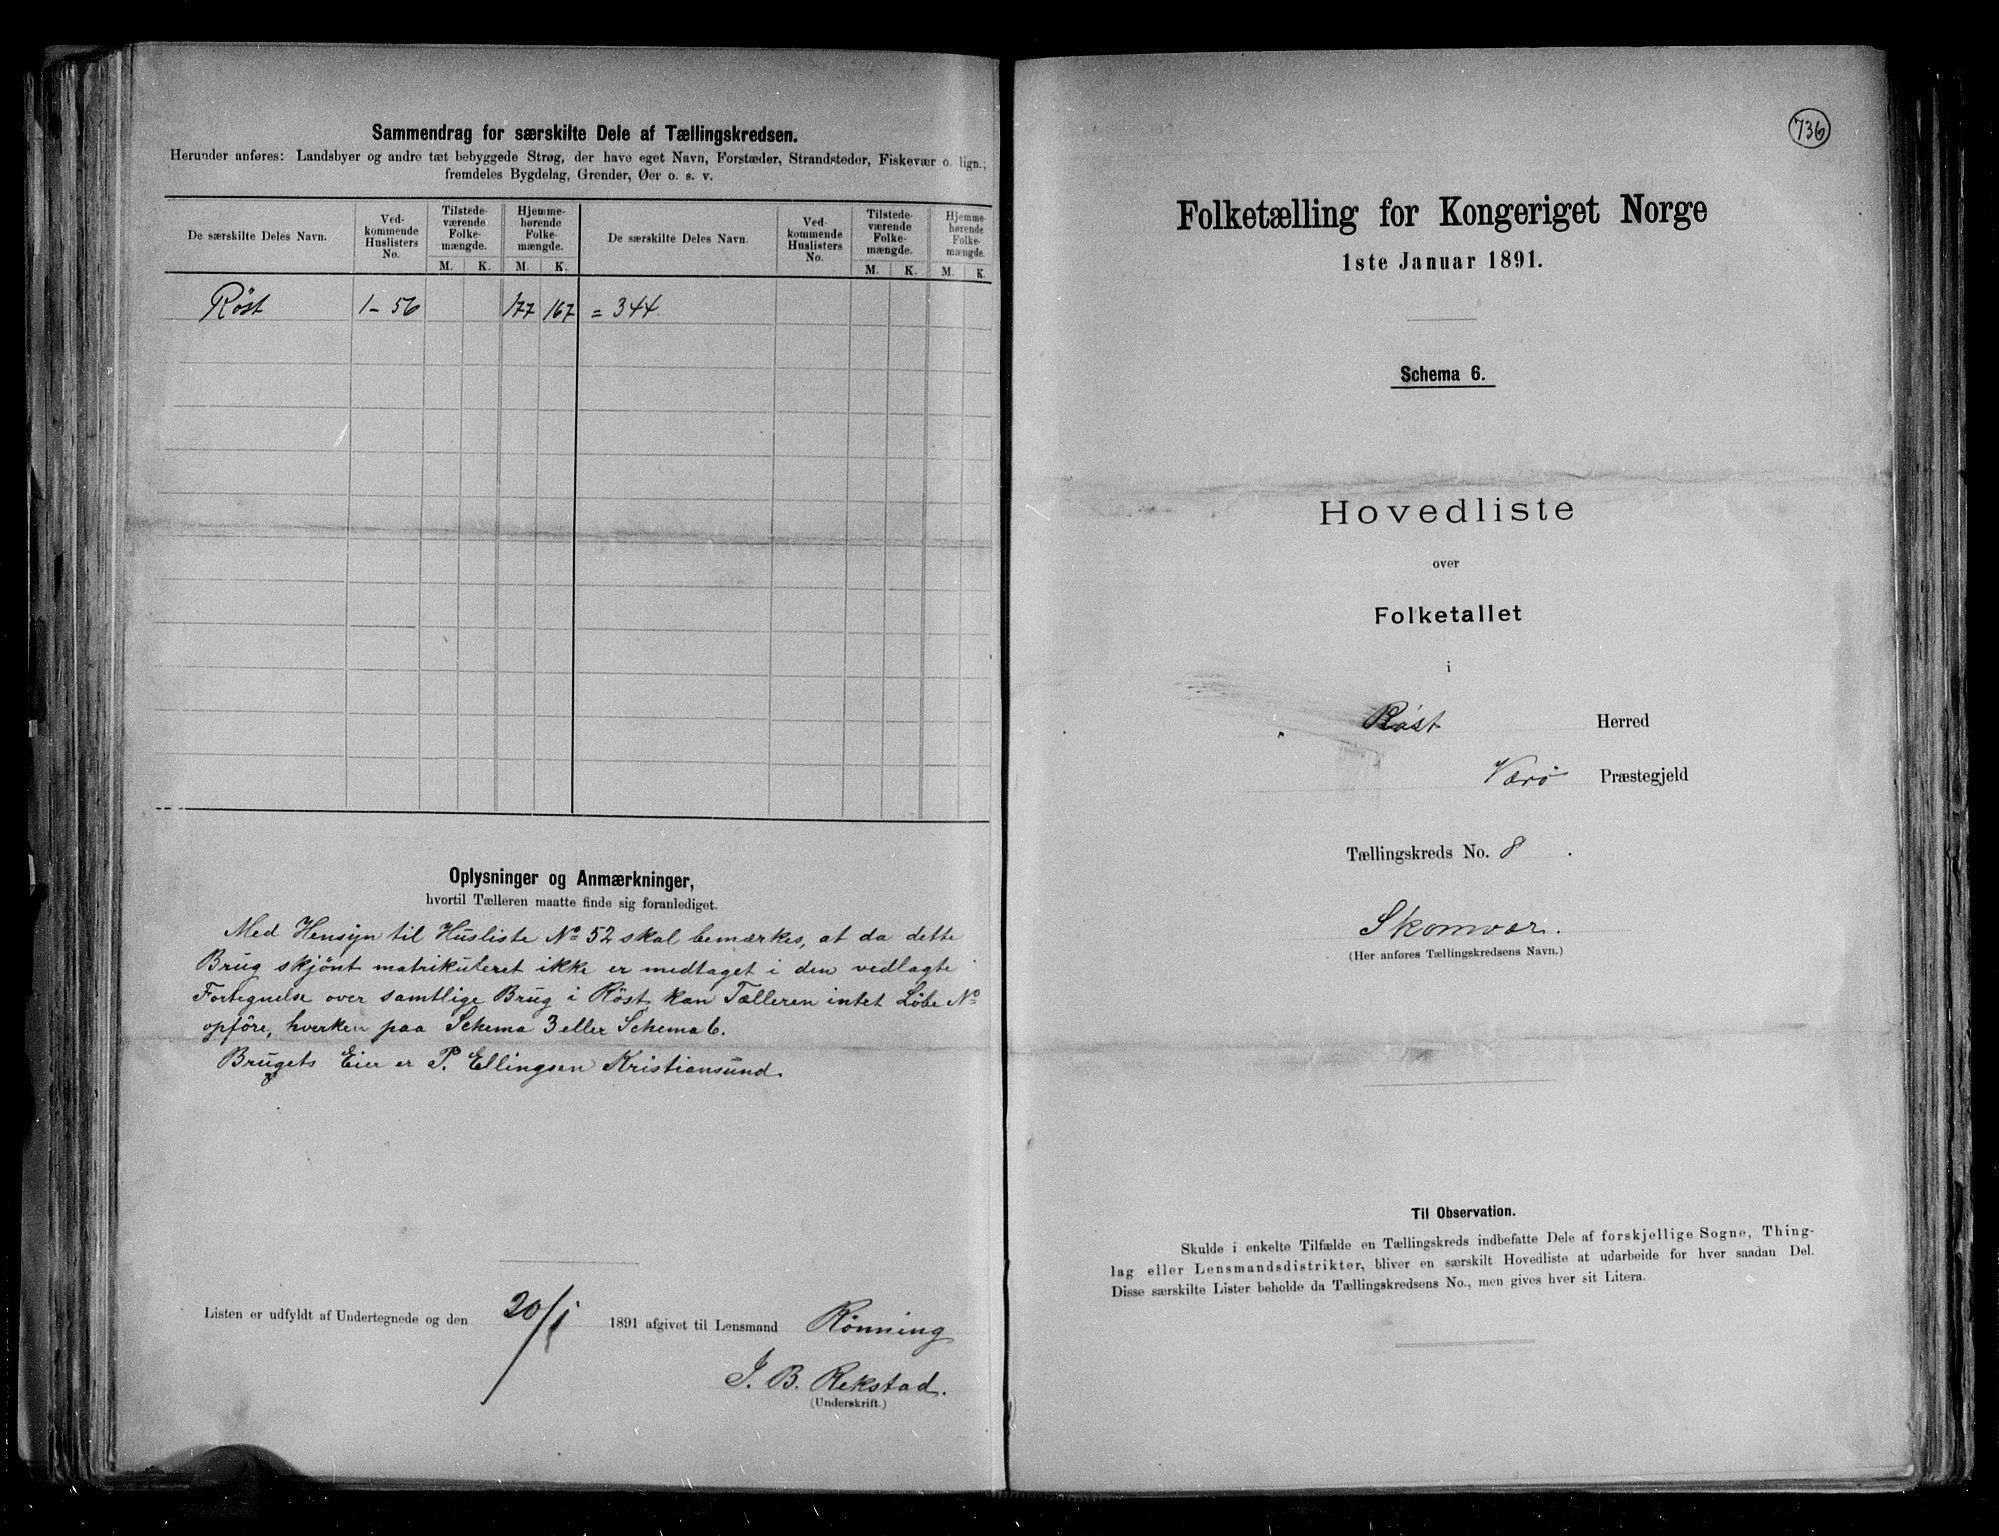 Sammendrag for særskilte Dele af Tællingskredsen.
Herunder anføres: Landsbyer og andre tæt bebyggede Strøg, der have eget Navn, Forstæder, Strandsteder, Fiskevær o. lign.;
fremdeles Bygdelag, Grender, Øer o. s. v.
De særskilte Deles Navn. Ved-kommende Huslisters No. Tilstede-værende Folke-mængde. Hjemme-hørende Folke-mængde. De særskilte Deles Navn. Ved-kommende Huslisters No. Tilstede-værende Folke-mængde. Hjemme-hørende Folke-mængde.
M. K. M. K. M. K. M. K.
Röst 1-56 177 167 = 344.
Oplysninger og Anmærkninger,
hvortil Tælleren maatte finde sig foranlediget.
Med Hensyn til Husliste No 52 skal bemærkes, at da dette
Brug skjønt matrikuleret ikke er medtaget i den vedlagte
Fortegnelse over samtlige Brug i Röst kan Tælleren intet Löbe No
opföre, hverken paa Schema 3 eller Schema 6.
Brugets Eier er P. Ellingsen Kristiansund.
Listen er udfyldt af Undertegnede og den 20/1 1891 afgivet til Lensmand Rönning
J. B. Rekstad.
(Underskrift.)
736
Folketælling for Kongeriget Norge
1ste Januar 1891.
Schema 6.
Hovedliste
over
Folketallet
i
Röst Herred
Værö Præstegjeld
Tællingskreds No. 8.
Skomvær.
(Her anføres Tællingskredsens Navn.)
Til Observation.
Skulde i enkelte Tilfælde en Tællingskreds indbefatte Dele af forskjellige Sogne, Thing-
lag eller Lensmandsdistrikter, bliver en særskilt Hovedliste at udarbeide for hver saadan Del.
Disse særskilte Lister beholde da Tællingskredsens No., men gives hver sit Litera.